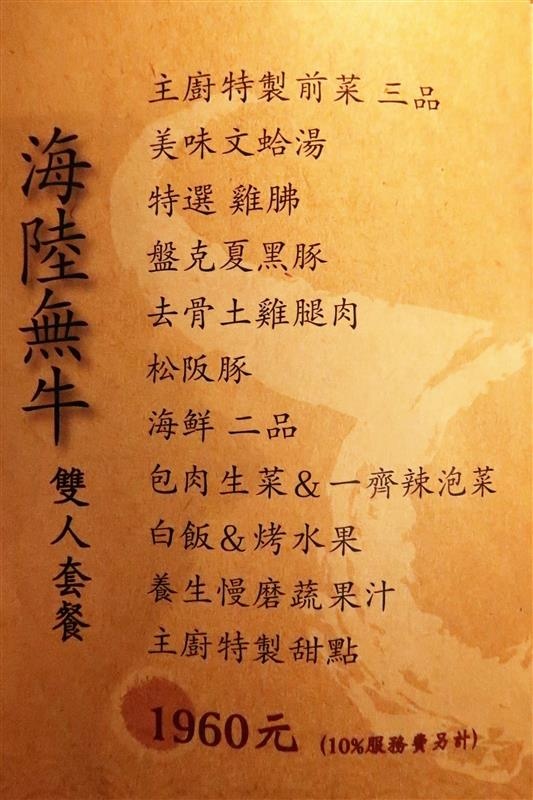 海陸無牛 雙人套餐
主廚特製前菜 三品
美味文蛤湯
特選 雞胇
盤克夏黑豚
去骨土雞腿肉
松阪豚
海鮮 二品
包肉生菜&一齊辣泡菜
白飯&烤水果
養生慢磨蔬果汁
主廚特製甜點
1960元 (10%服務費另計)